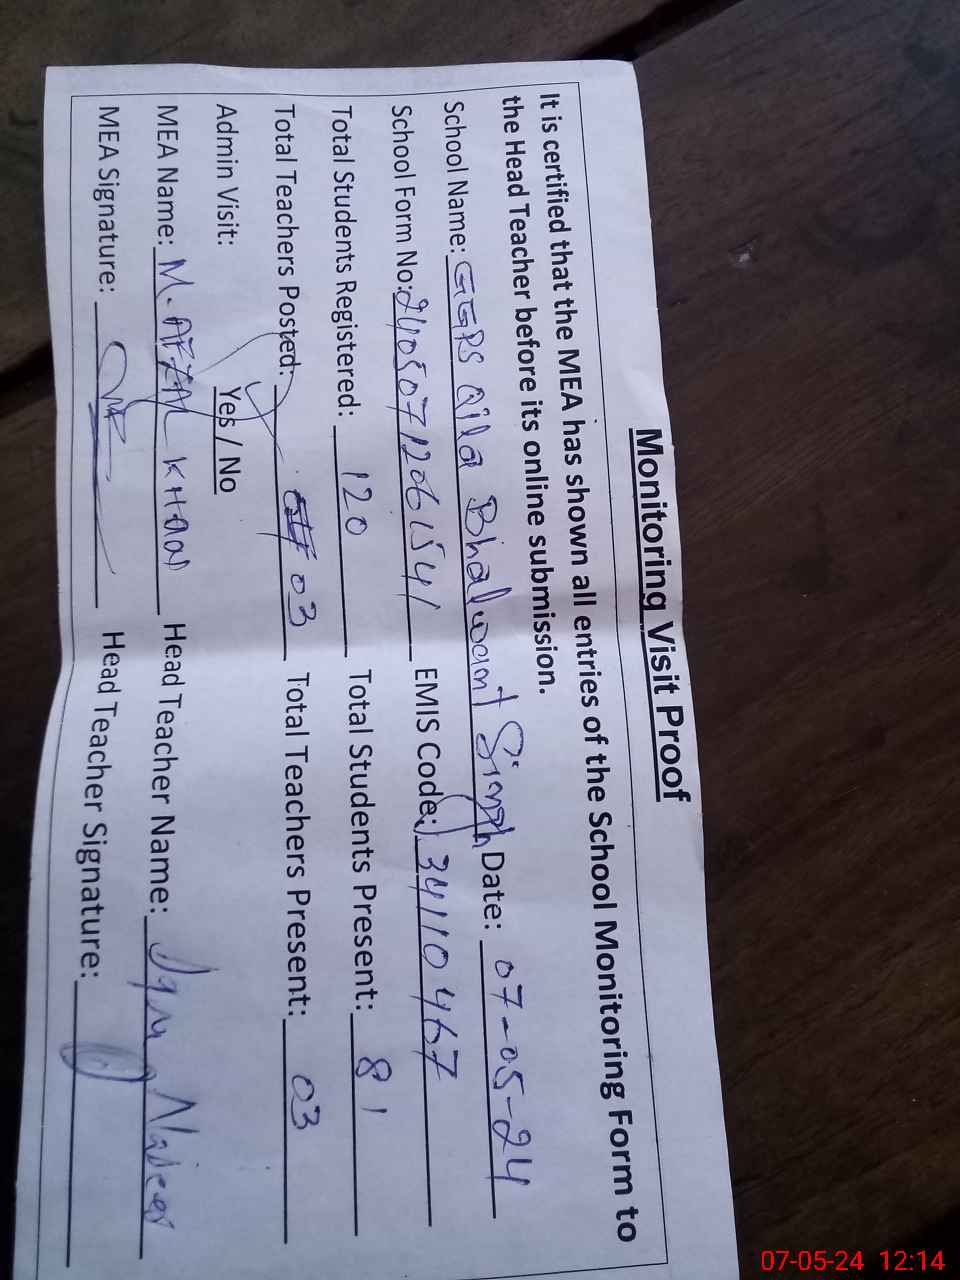 Monitoring Visit Proof
It is certified that the MEA has shown all entries of the School Monitoring Form to
the Head Teacher before its online submission.
School Name: GGPS Qila Bhalwant Singh Date: 07-05-24
School Form No: 24050712061541 EMIS Code: 34110467
Total Students Registered: 120 Total Students Present: 81
Total Teachers Posted: 03 Total Teachers Present: 03
Admin Visit: Yes / No
MEA Name: M. AFZAL KHAN Head Teacher Name:
MEA Signature: Head Teacher Signature:
07-05-24 12:14